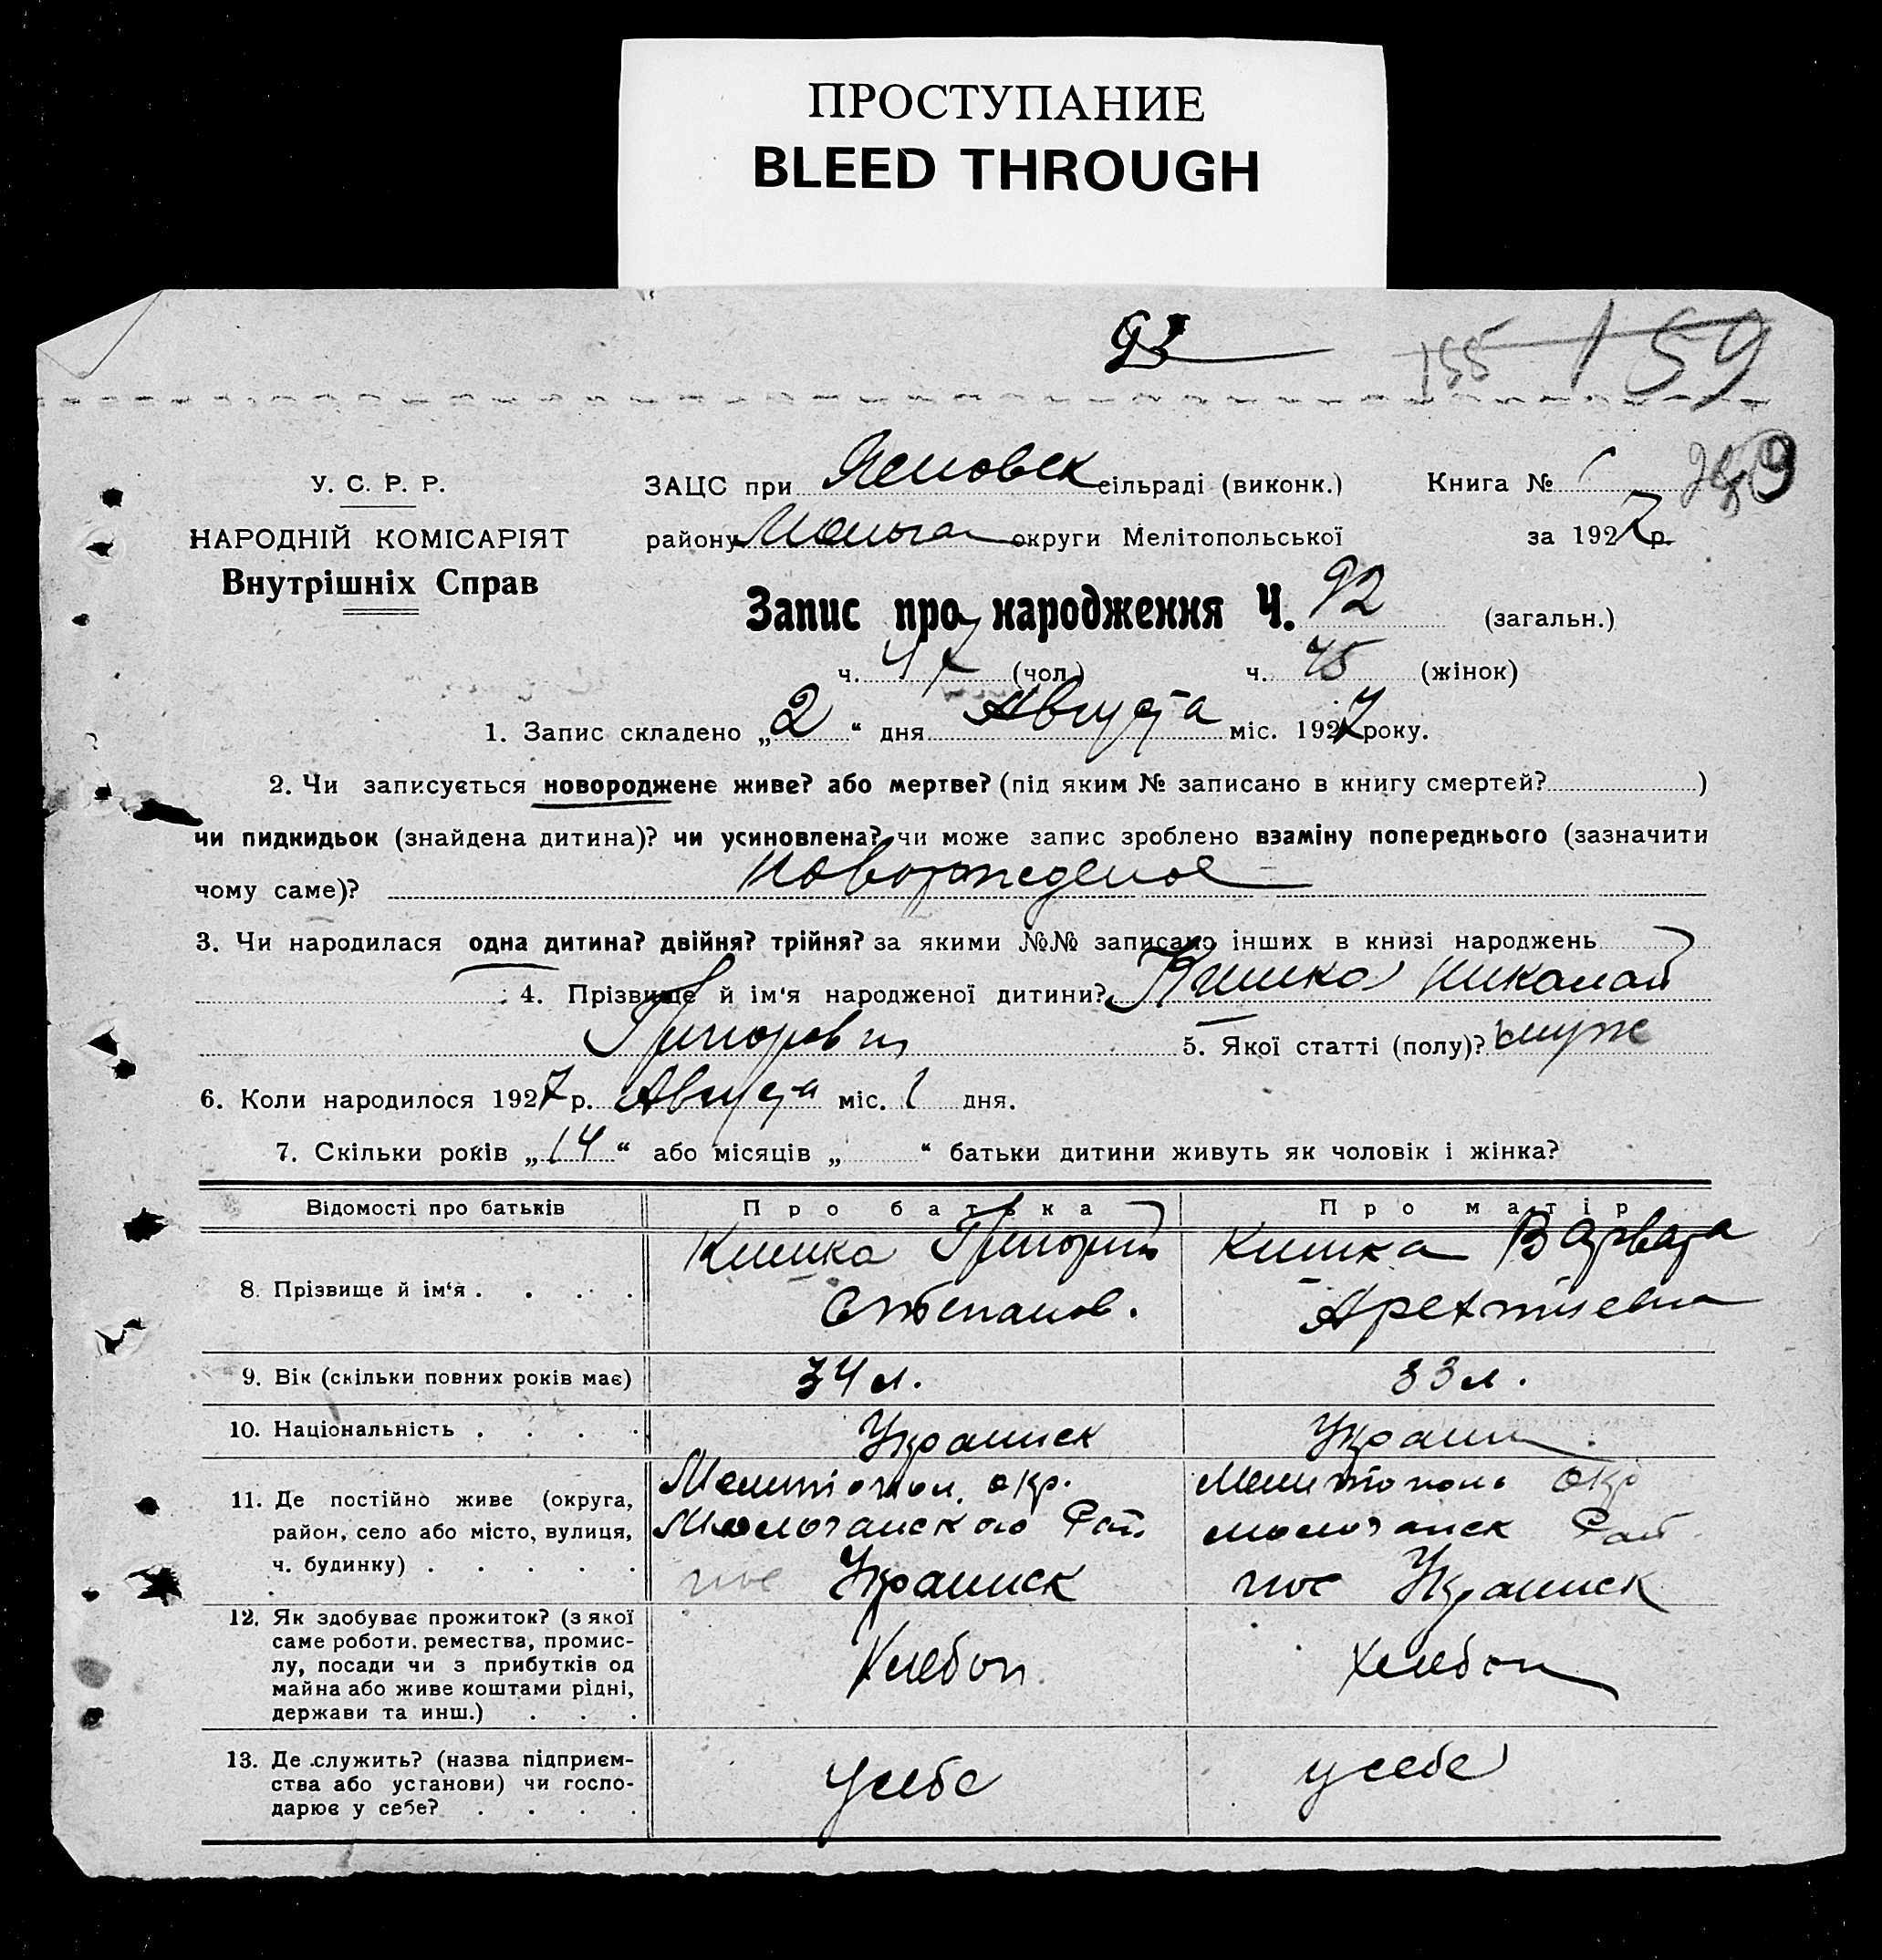 ПРОСТУПАНИЕ
BLEED THROUGH
93
155 159
У. С. Р. Р.
НАРОДНІЙ КОМІСАРІЯТ
Внутрішніх Справ
ЗАЦС при сільраді (виконк.) Книга №
району округи Мелітопольської за 1927 р.
Запис про народження Ч. 92 (загальн.)
ч. 47 (чол.) ч. 45 (жінок)
1. Запис складено „2“ дня Августа міс. 1927 року.
2. Чи записується новороджене живе? або мертве? (під яким № записано в книгу смертей? )
чи пидкидьок (знайдена дитина)? чи усиновлена? чи може запис зроблено взаміну попереднього (зазначити
чому саме)? Новорожденое
3. Чи народилася одна дитина? двійня? трійня? за якими №№ записано інших в книзі народжень
4. Прізвище й ім‘я народженої дитини? Кишка Николай
5. Якої статті (полу)? муж
6. Коли народилося 1927 р. Августа міс. 1 дня.
7. Скільки років „14“ або місяців „ “ батьки дитини живуть як чоловік і жінка?
Відомості про батьків Про батька Про матір
8. Прізвище й ім‘я . . . . Кишка Григорий Степанов. Кишка Варвара
9. Вік (скільки повних років має) 34 л. 33 л.
10. Національність . . . . Украинск Украин.
11. Де постійно живе (округа, Мелитопол. окр. Мелитополь окр
район, село або місто, вулиця, Молочанского Рай. Молочанск Рай
ч. будинку) . . . . . пос Украинск пос Украинск
12. Як здобуває прожиток? (з якої
саме роботи, ремества, промис-
лу, посади чи з прибутків од Хлебоп Хлебоп
майна або живе коштами рідні,
держави та инш.) . . .
13. Де служить? (назва підприєм-
ства або установи) чи госпо- у себе у себе
дарює у себе? . . . .